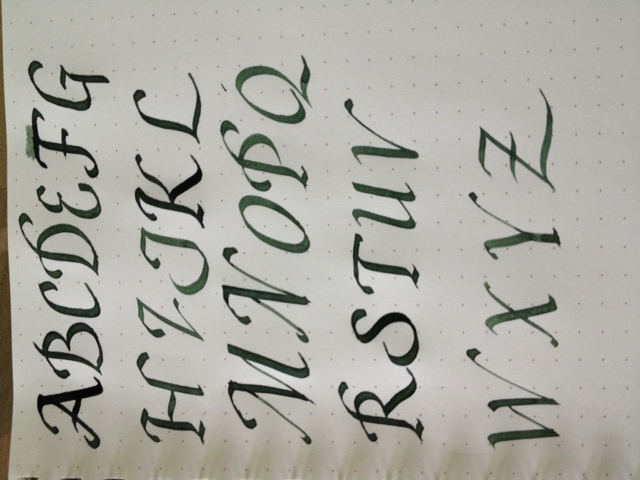 ABCDEFG
HIJKL
MNOPQ
RSTUV
WXYZ